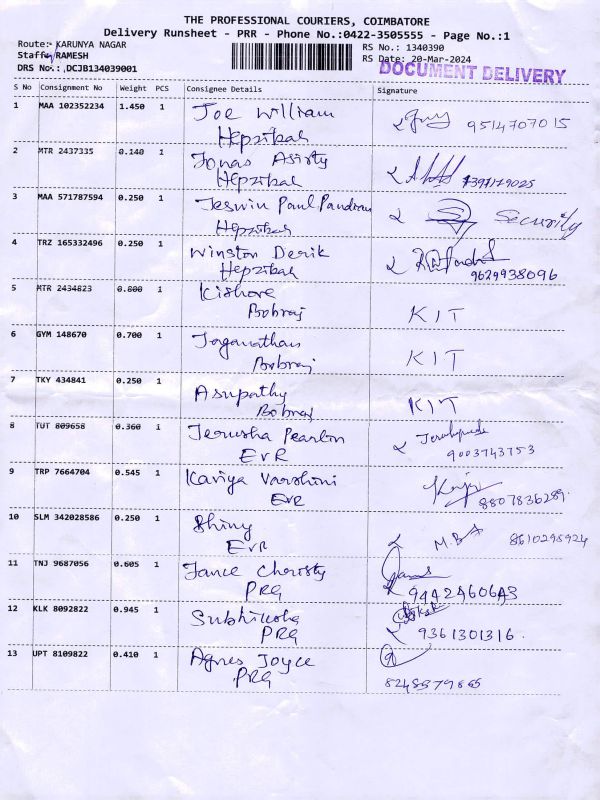 THE PROFESSIONAL COURIERS, COIMBATORE
Delivery Runsheet - PRR - Phone No.:0422-3505555 - Page No.:1
Route:- KARUNYA NAGAR RS No.: 1340390
Staff: RAMESH RS Date: 20-Mar-2024
DRS No.: DCJB134039001 DOCUMENT DELIVERY
S No Consignment No Weight PCS Consignee Details Signature
1 MAA 102352234 1.450 1 Joe William
Hepzibah 9514707015
2 MTR 2437335 0.140 1 Jonas Asirty
Hepzibah
3 MAA 571787594 0.250 1 Jeswin Paul Pandian
Hepzibah Security
4 TRZ 165332496 0.250 1 Winston Derik
Hepzibah 9629938096
5 MTR 2434823 0.800 1 Kishore
Bobraj KIT
6 GYM 148670 0.700 1 Jaganathan
Bobraj KIT
7 TKY 434841 0.250 1 Asupathy
Bobraj KIT
8 TUT 809658 0.360 1 Jerusha Pearlon
EVR 9003743753
9 TRP 7664704 0.545 1 Kaviya Varshini
EVR 8807836289
10 SLM 342028586 0.250 1 Shiny
EVR M.BA 8610298924
11 TNJ 9687056 0.605 1 Jance Christy
PRG 9442460643
12 KLK 8092822 0.945 1 Subhiksha
PRG 9361301316
13 UPT 8109822 0.410 1 Agnes Joyce
PRG